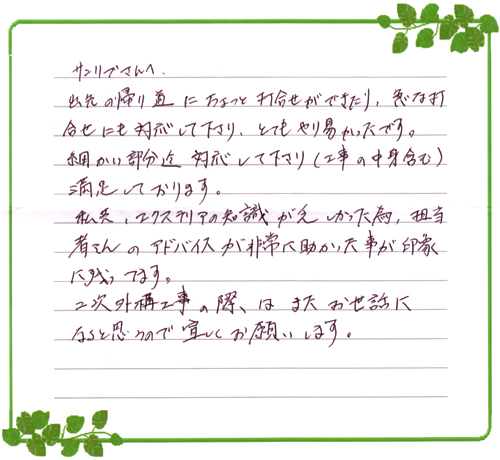 サンリブさんへ.
出先の帰り道にちょっと打合せができたり, 急な打
合せにも対応して下さり、とてもやり易かったです。
細かい部分迄 対応して下さり(工事の中身含む)
満足しております。
私共、エクステリアの知識が乏しかった為, 担当
者さんのアドバイスが非常に助かった事が印象
に残ってます。
二次外構工事の際、は またお世話に
なると思うので宜しくお願いします。